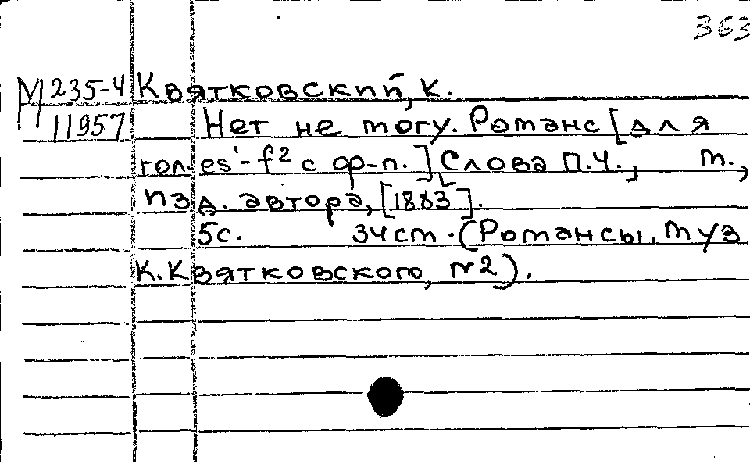 363
М 235-4 Квятковский, К.
11957 Нет не могу. Романс [для
гол. es'-f² с ф-п.] Слова П.Ч., М.,
изд. автора, [1883].
5с. 34см. (Романсы, муз
К. Квятковского, №2).